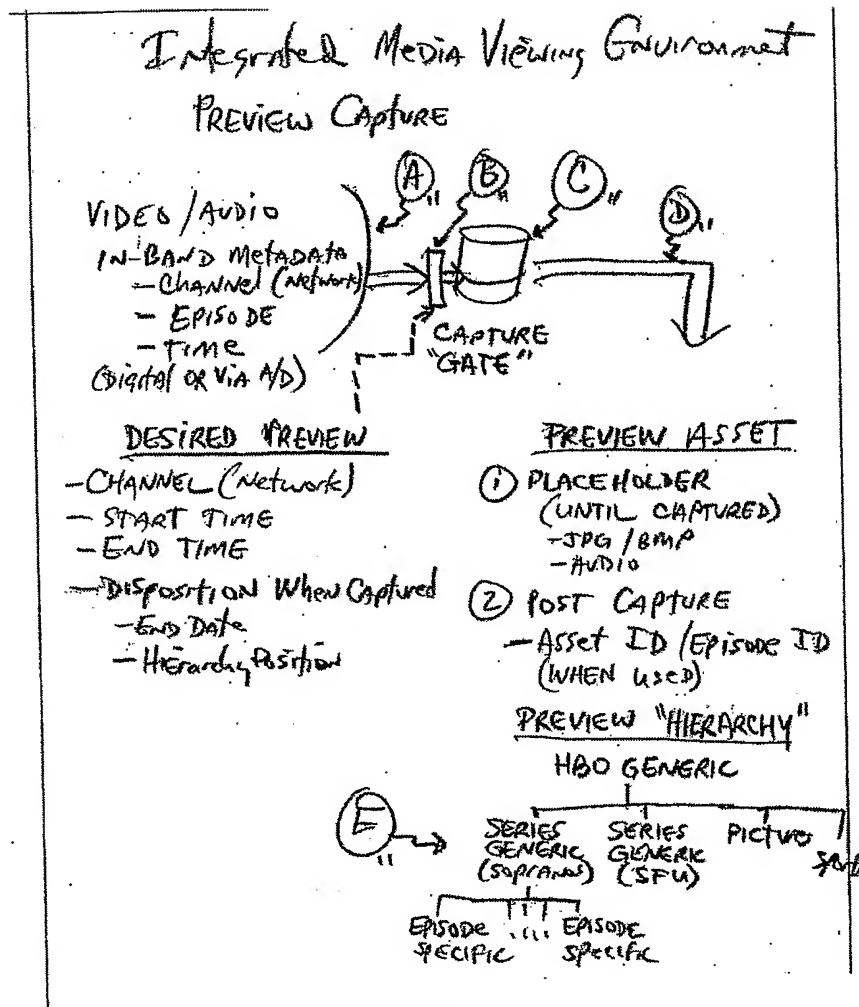 Integrated Media Viewing Environment
PREVIEW CAPTURE
A
B
C
D
VIDEO / AUDIO
IN-BAND METADATA
- CHANNEL (Network)
- EPISODE
- TIME
(DIGITAL OR VIA A/D)
CAPTURE
"GATE"
DESIRED PREVIEW
- CHANNEL (Network)
- START TIME
- END TIME
- DISPOSITION When Captured
- END Date
- Hierarchy Position
PREVIEW ASSET
1 PLACEHOLDER
(UNTIL CAPTURED)
- JPG / BMP
- AUDIO
2 POST CAPTURE
- ASSET ID / EPISODE ID
(WHEN USED)
PREVIEW "HIERARCHY"
HBO GENERIC
E
SERIES GENERIC (SOPRANOS)
SERIES GENERIC (SFU)
PICTURES
EPISODE SPECIFIC
....
EPISODE SPECIFIC